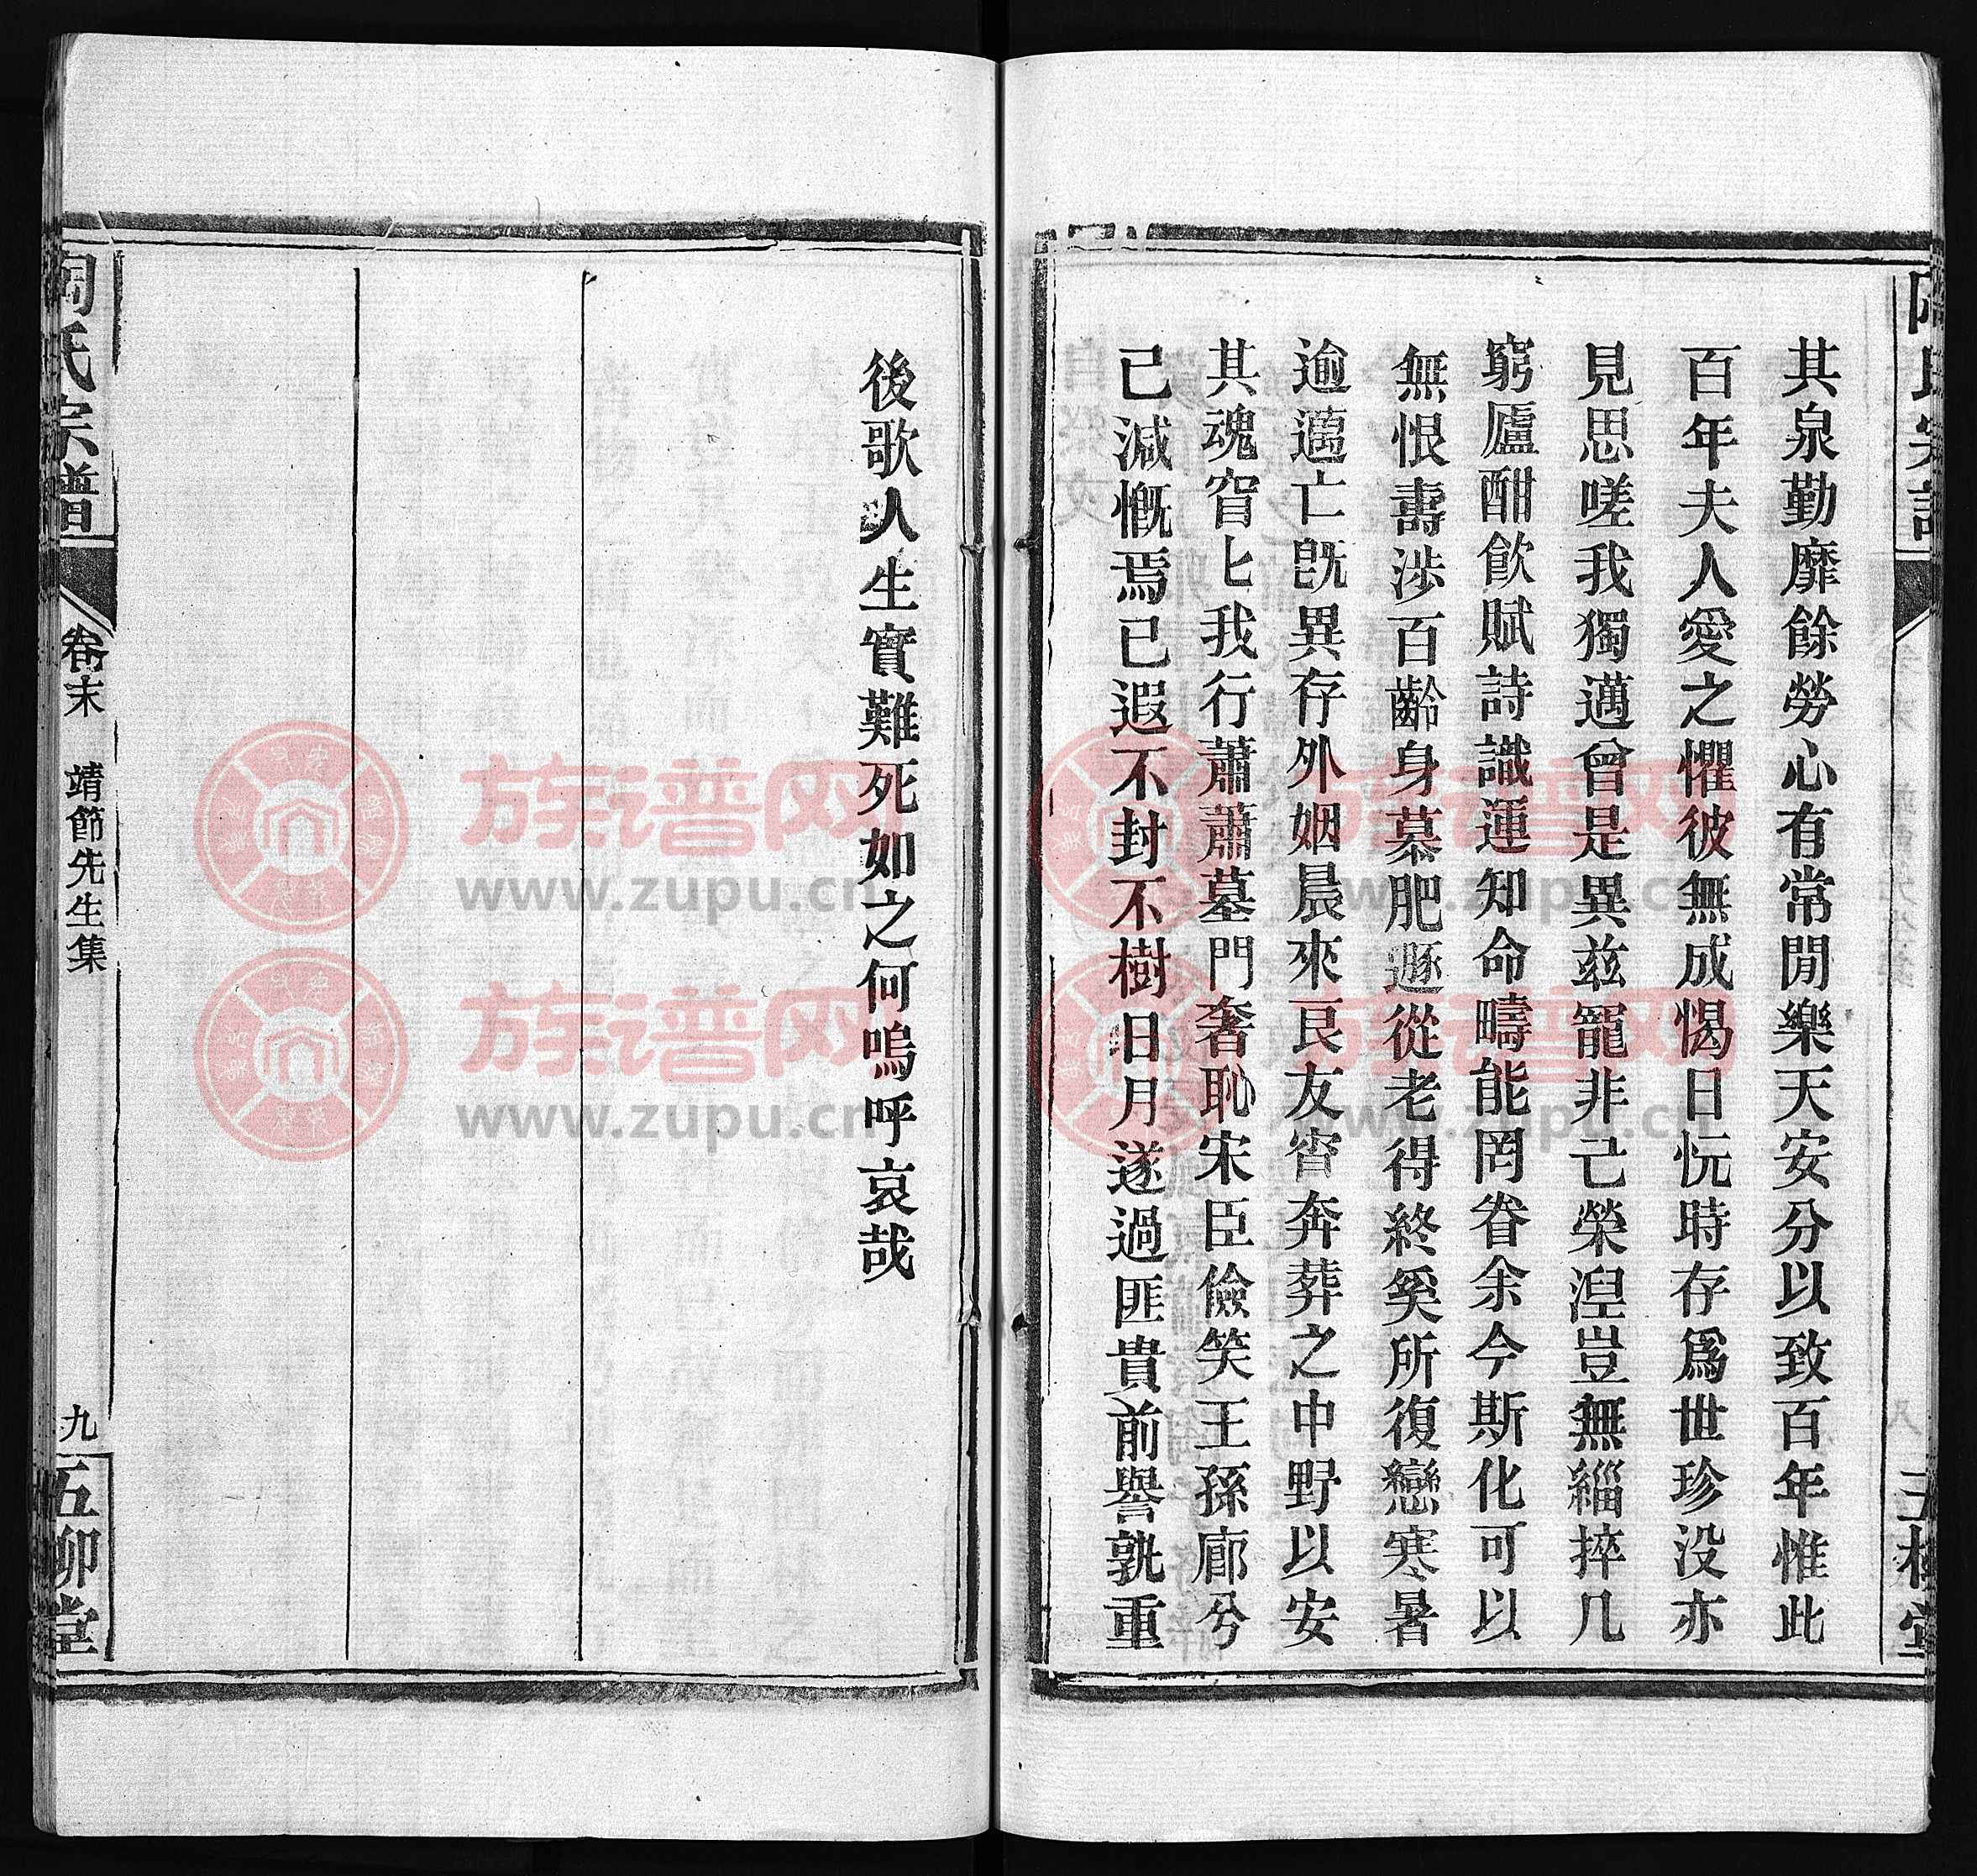 其泉勤靡餘勞心有常閒樂天安分以致百年惟此
百年夫人愛之懼彼無成愒日忨時存爲世珍没亦
見思嗟我獨邁曾是異兹寵非己榮湼豈無緇捽几
窮廬酣飮賦詩識運知命疇能罔眷余今斯化可以
無恨壽涉百齡身慕肥遯從老得終奚所復戀寒暑
逾邁亡旣異存外姻晨來良友宵奔葬之中野以安
其魂窅匕我行蕭蕭墓門奢恥宋臣儉笑王孫廊兮
已減慨焉已遐不封不樹日月遂過匪貴前譽孰重
後歌人生實難死如之何嗚呼哀哉
陶氏宗譜
卷末 靖節先生集
九
五柳堂
族谱网
www.zupu.cn
族谱网
www.zupu.cn
族谱网
www.zupu.cn
族谱网
www.zupu.cn